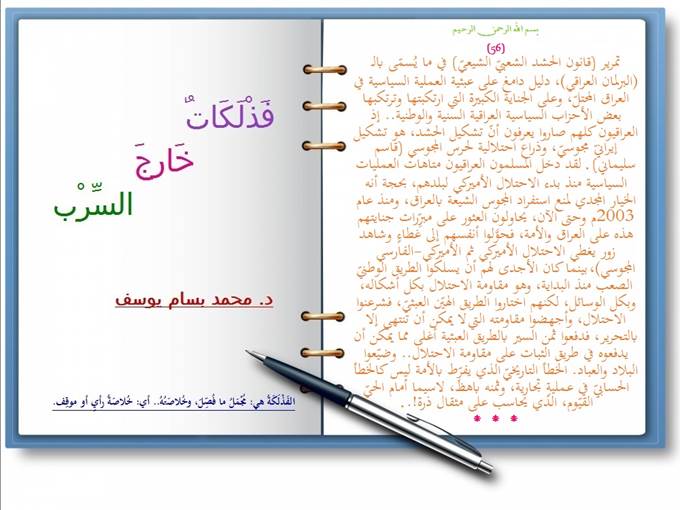 بسم الله الرحمن الرحيم
(56)
تمرير (قانون الحشد الشعبيّ الشيعيّ) في ما يُسمّى بالـ
(البرلمان العراقي)، دليل دامغ على عبثية العملية السياسية في
العراق المحتلّ، وعلى الجناية الكبيرة التي ارتكبتها وترتكبها
بعض الأحزاب السياسية العراقية السنية والوطنية.. إذ
العراقيون كلهم صاروا يعرفون أنّ تشكيل الحشد، هو تشكيل
إيرانيّ مجوسيّ، وذراع احتلالية لحرس المجوسي (قاسم
سليماني). لقد دخل المسلمون العراقيون متاهات العمليات
السياسية منذ بدء الاحتلال الأميركي لبلدهم، بحجة أنه
الخيار المجدي لمنع استفراد المجوس الشيعة بالعراق، ومنذ عام
2003م وحتى الآن، يحاولون العثور على مبرّرات جنايتهم
هذه على العراق والأمة، فحوّلوا أنفسهم إلى غطاءٍ وشاهد
زور يغطي الاحتلال الأميركي ثم الأميركي-الفارسي
المجوسي)، بينما كان الأجدى لهم أن يسلكوا الطريق الوطنيّ
الصعب منذ البداية، وهو مقاومة الاحتلال بكل أشكاله،
وبكل الوسائل، لكنهم اختاروا الطريق الهيّن العبثيّ، فشرعنوا
الاحتلال، وأجهضوا مقاومته التي لا يمكن أن تنتهي إلا
بالتحرير، فدفعوا ثمن السير بالطريق العبثية أغلى مما يمكن أن
يدفعوه في طريق الثبات على مقاومة الاحتلال.. وضيّعوا
البلاد والعباد. الخطأ التاريخيّ الذي يفرّط بالأمة ليس كالخطأ
الحسابيّ في عمليةٍ تجارية، وثمنه باهظ، لاسيما أمام الحيّ
القيّوم، الذي يحاسب على مثقال ذرة!..
* * *
فَذْلَكَاتٌ
خَارِجَ
السِّرْب
د. محمد بسام يوسف
الفَذْلَكَةُ هي: مُجْمَلُ ما فُصِّلَ، وخُلاصَتُهُ.. أي: خُلاصَةُ رأيٍ أو موقِف.